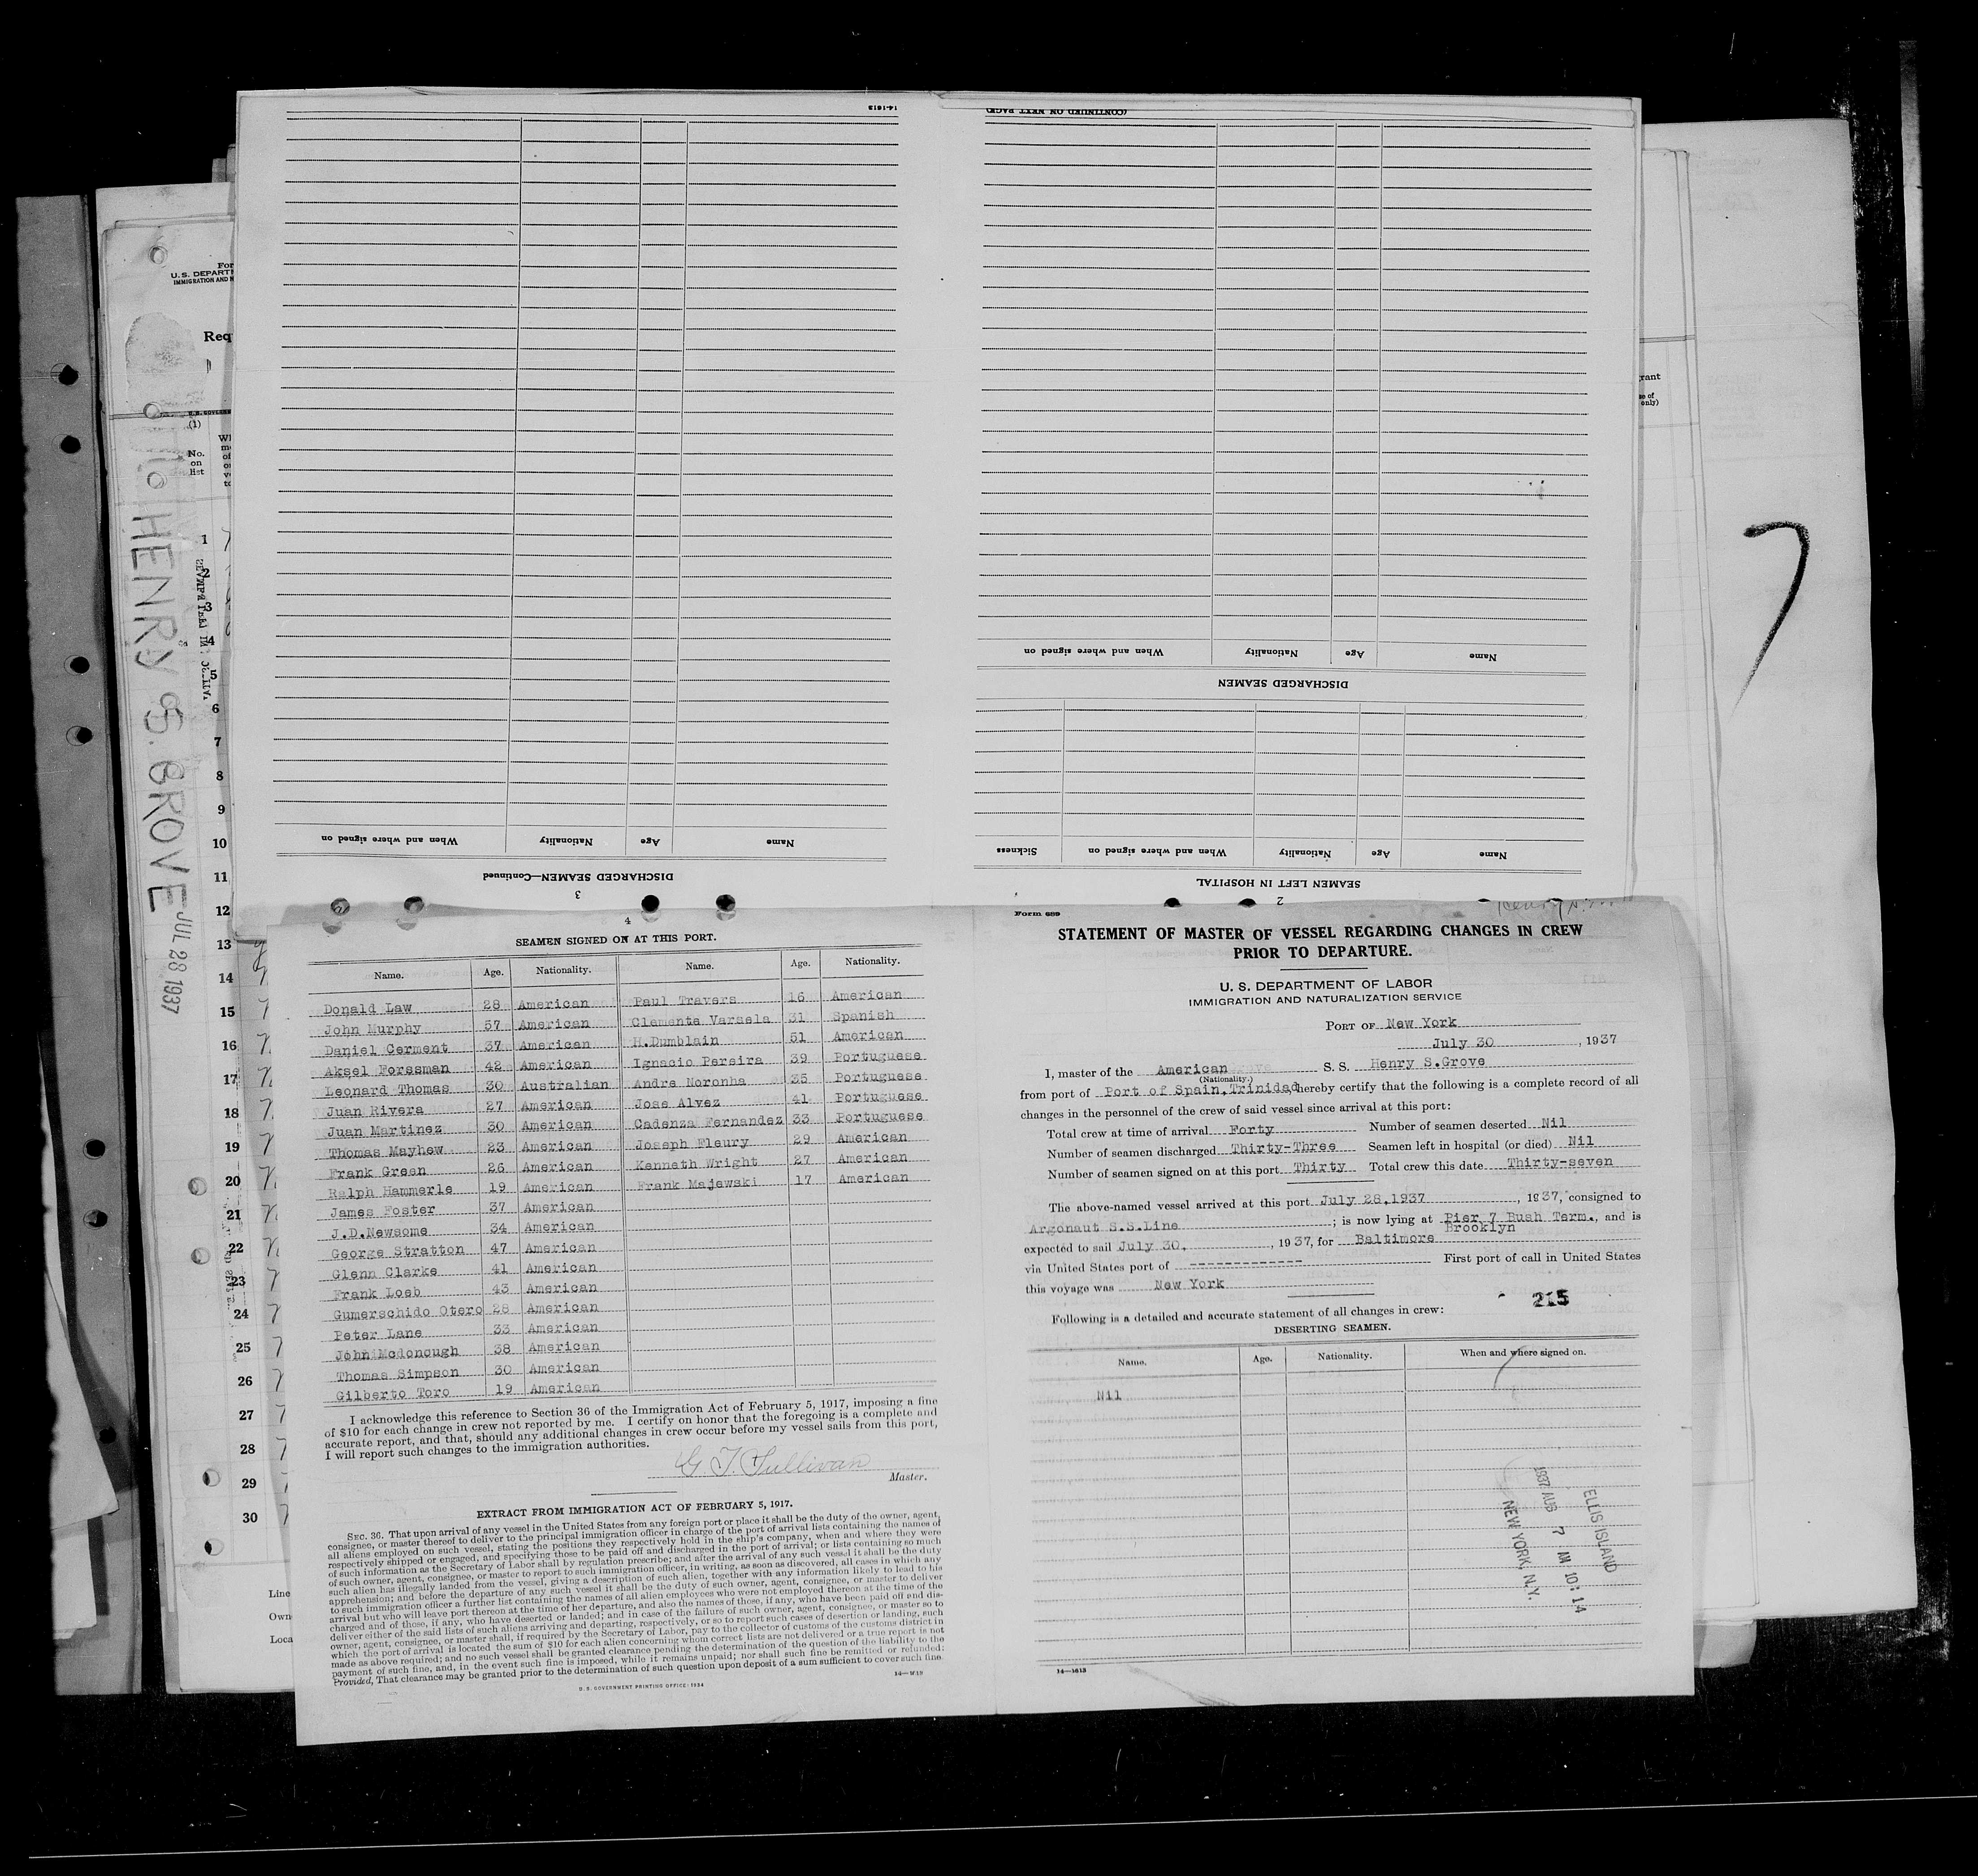 14-1613
(CONTINUED ON NEXT PAGE)
When and where signed on Nationality Age Name
DISCHARGED SEAMEN
When and where signed on Nationality Age Name
DISCHARGED SEAMEN—Continued
3
Sickness When and where signed on Nationality Age Name
SEAMEN LEFT IN HOSPITAL
2
U. S. DEPARTM
IMMIGRATION AND N
Req
(1)
No.
on
list
HENRY S. GROVE JUL 28 1937
1
2
3
4
5
6
7
8
9
10
11
12
13
14
15
16
17
18
19
20
21
22
23
24
25
26
27
28
29
30
Line
Own
Loca
rant
only)
7
4
SEAMEN SIGNED ON AT THIS PORT.
Name. Age. Nationality. Name. Age. Nationality.
Donald Law 28 American Paul Travers 16 American
John Murphy 57 American Clemente Varsela 31 Spanish
Daniel Cerment 37 American H.Dumblain 51 American
Aksel Forssman 42 American Ignacio Pereira 39 Portuguese
Leonard Thomas 30 Australian Andre Noronha 35 Portuguese
Juan Rivera 27 American Jose Alvez 41 Portuguese
Juan Martinez 30 American Cadenza Fernandez 33 Portuguese
Thomas Mayhew 23 American Joseph Fleury 29 American
Frank Green 26 American Kenneth Wright 27 American
Ralph Hammerle 19 American Frank Majewski 17 American
James Foster 37 American
J.D.Newsome 34 American
George Stratton 47 American
Glenn Clarke 41 American
Frank Loeb 43 American
Gumerschido Otero 28 American
Peter Lane 33 American
John Mcdonough 38 American
Thomas Simpson 30 American
Gilberto Toro 19 American
I acknowledge this reference to Section 36 of the Immigration Act of February 5, 1917, imposing a fine
of $10 for each change in crew not reported by me. I certify on honor that the foregoing is a complete and
accurate report, and that, should any additional changes in crew occur before my vessel sails from this port,
I will report such changes to the immigration authorities.
G. T. Sullivan
Master.
EXTRACT FROM IMMIGRATION ACT OF FEBRUARY 5, 1917.
SEC. 36. That upon arrival of any vessel in the United States from any foreign port or place it shall be the duty of the owner, agent,
consignee, or master thereof to deliver to the principal immigration officer in charge of the port of arrival lists containing the names of
all aliens employed on such vessel, stating the positions they respectively hold in the ship's company, when and where they were
respectively shipped or engaged, and specifying those to be paid off and discharged in the port of arrival; or lists containing so much
of such information as the Secretary of Labor shall by regulation prescribe; and after the arrival of any such vessel it shall be the duty
of such owner, agent, consignee, or master to report to such immigration officer, in writing, as soon as discovered, all cases in which any
such alien has illegally landed from the vessel, giving a description of such alien, together with any information likely to lead to his
apprehension; and before the departure of any such vessel it shall be the duty of such owner, agent, consignee, or master to deliver
to such immigration officer a further list containing the names of all alien employees who were not employed thereon at the time of the
arrival but who will leave port thereon at the time of her departure, and also the names of those, if any, who have been paid off and dis-
charged and of those, if any, who have deserted or landed; and in case of the failure of such owner, agent, consignee, or master so to
deliver either of the said lists of such aliens arriving and departing, respectively, or so to report such cases of desertion or landing, such
owner, agent, consignee, or master shall, if required by the Secretary of Labor, pay to the collector of customs of the customs district in
which the port of arrival is located the sum of $10 for each alien concerning whom correct lists are not delivered or a true report is not
made as above required; and no such vessel shall be granted clearance pending the determination of the question of the liability to the
payment of such fine, and, in the event such fine is imposed, while it remains unpaid; nor shall such fine be remitted or refunded:
Provided, That clearance may be granted prior to the determination of such question upon deposit of a sum sufficient to cover such fine
U. S. GOVERNMENT PRINTING OFFICE: 1934
Form 689
STATEMENT OF MASTER OF VESSEL REGARDING CHANGES IN CREW
PRIOR TO DEPARTURE.
U. S. DEPARTMENT OF LABOR
IMMIGRATION AND NATURALIZATION SERVICE
PORT OF New York
July 30, 1937
I, master of the American S. S. Henry S.Grove
(Nationality.)
from port of Port of Spain,Trinidad, hereby certify that the following is a complete record of all
changes in the personnel of the crew of said vessel since arrival at this port:
Total crew at time of arrival Forty Number of seamen deserted Nil
Number of seamen discharged Thirty-Three Seamen left in hospital (or died) Nil
Number of seamen signed on at this port Thirty Total crew this date Thirty-seven
The above-named vessel arrived at this port July 28,1937, 1937, consigned to
Argonaut S.S.Line; is now lying at Pier 7 Bush Term., and is
Brooklyn
expected to sail July 30,, 1937, for Baltimore
via United States port of ------------- First port of call in United States
this voyage was New York
215
Following is a detailed and accurate statement of all changes in crew:
DESERTING SEAMEN.
Name. Age. Nationality. When and where signed on.
Nil
ELLIS ISLAND
1937 AUG 7 AM 10:14
NEW YORK, N.Y.
14—1613